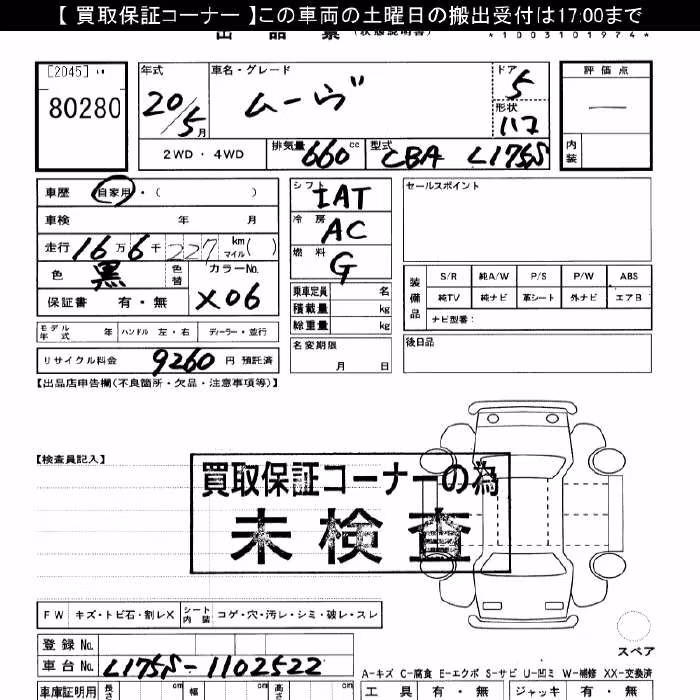 【 買取保証コーナー 】この車両の土曜日の搬出受付は17:00まで
出 品 票 (状態説明書) *1003101974*
[2045]
80280
年式 20/5月
車名・グレード ムーヴ
ドア 5
形状 ハコ
評価点 —
内装
2WD ・ 4WD 排気量 660cc 型式 CBA L175S
車歴 自家用・( )
シフト IAT
セールスポイント
車検 年 月
冷房 AC
走行 16万6千227km マイル( )
燃料 G
色 黒 色替 カラーNo. X06
保証書 有・無
乗車定員 名
積載量 kg
総重量 kg
装備品 S/R 純A/W P/S P/W ABS
純TV 純ナビ 革シート 外ナビ エアB
ナビ型番:
モデル年式 年 ハンドル 左・右 ディーラー・並行
名変期限 月 日
後日品
リサイクル料金 9260 円 預託済
【出品店申告欄(不良箇所・欠品・注意事項等)】
【検査員記入】
買取保証コーナーの為
未検査
FW キズ・トビ石・割レX シート内装 コゲ・穴・汚レ・シミ・破レ・スレ
スペア
登録 No.
車台 No. L175S-1102522
A-キズ C-腐食 E-エクボ S-サビ U-凹ミ W-補修 XX-交換済
車庫証明用 長さ cm 幅 cm 高さ cm
工具 有・無 ジャッキ 有・無